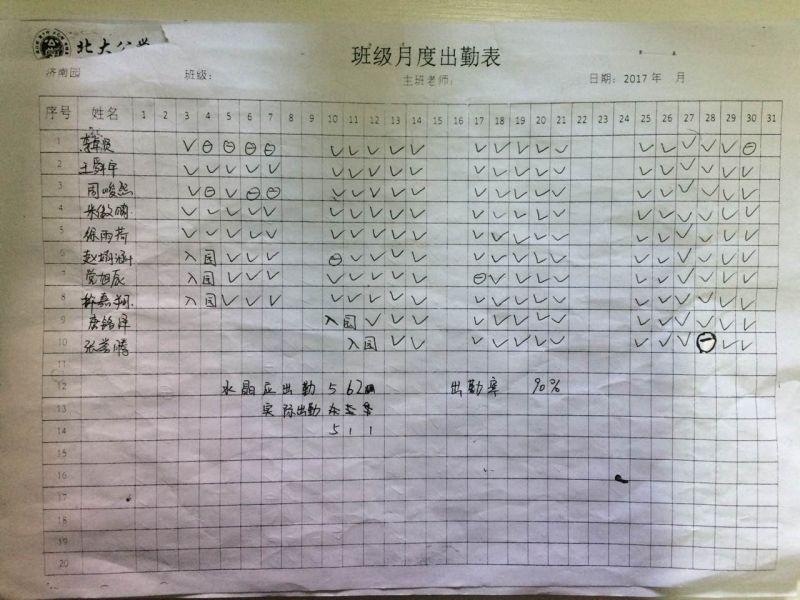 北大公学
班级月度出勤表
济南园 班级: 主班老师: 日期: 2017 年 月
序号 姓名 1 2 3 4 5 6 7 8 9 10 11 12 13 14 15 16 17 18 19 20 21 22 23 24 25 26 27 28 29 30 31
1 ✓ ⊖ ⊖ ⊖ ⊖ ✓ ✓ ✓ ✓ ✓ ✓ ✓ ✓ ✓ ✓ ✓ ✓ ✓ ✓ ✓ ⊖
2 王舜年 ✓ ✓ ✓ ✓ ✓ ✓ ✓ ✓ ✓ ✓ ✓ ✓ ✓ ✓ ✓ ✓ ✓ ✓ ✓ ✓ ✓
3 周峻然 ✓ ⊖ ✓ ⊖ ⊖ ✓ ✓ ✓ ✓ ✓ ✓ ✓ ✓ ✓ ✓ ✓ ✓ ✓ ✓ ✓ ✓
4 ✓ ✓ ✓ ✓ ✓ ✓ ✓ ✓ ✓ ✓ ✓ ✓ ✓ ✓ ✓ ✓ ✓ ✓ ✓ ✓ ✓
5 徐雨荷 ✓ ✓ ✓ ✓ ✓ ✓ ✓ ✓ ✓ ✓ ✓ ✓ ✓ ✓ ✓ ✓ ✓ ✓ ✓ ✓ ✓
6 入园 ✓ ✓ ✓ ⊖ ✓ ✓ ✓ ✓ ✓ ✓ ✓ ✓ ✓ ✓ ✓ ✓ ✓ ✓ ✓
7 党旭辰 入园 ✓ ✓ ✓ ✓ ✓ ✓ ✓ ✓ ⊖ ✓ ✓ ✓ ✓ ✓ ✓ ✓ ✓ ✓ ✓
8 入园 ✓ ✓ ✓ ✓ ✓ ✓ ✓ ✓ ✓ ✓ ✓ ✓ ✓ ✓ ✓ ✓ ✓ ✓ ✓
9 唐铭泽 入园 ✓ ✓ ✓ ✓ ✓ ✓ ✓ ✓ ✓ ✓ ✓ ✓ ✓ ✓
10 入园 ✓ ✓ ✓ ✓ ✓ ✓ ✓ ✓ ✓ ✓ ⊖ ✓ ✓
11
12 水晶应出勤 562 出勤率 90%
13 实际出勤
14 511
15
16
17
18
19
20